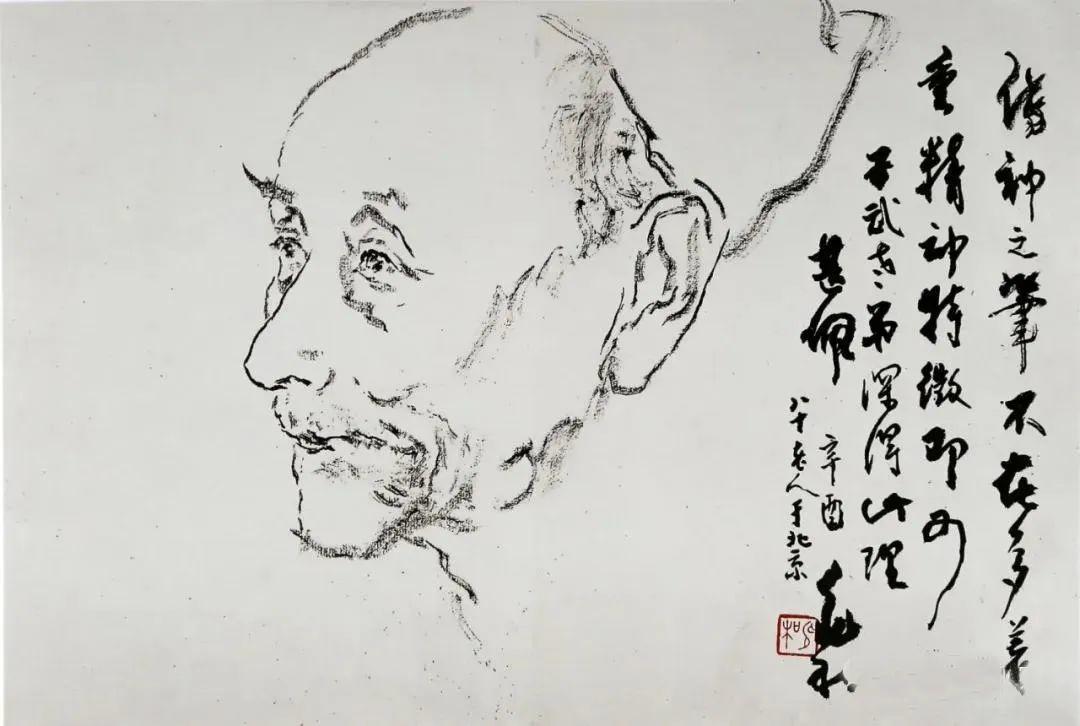 傳神之筆不在多着
重精神特徵即可
子武老弟深得此理
甚佩
辛酉
兆和
八十老人于北京